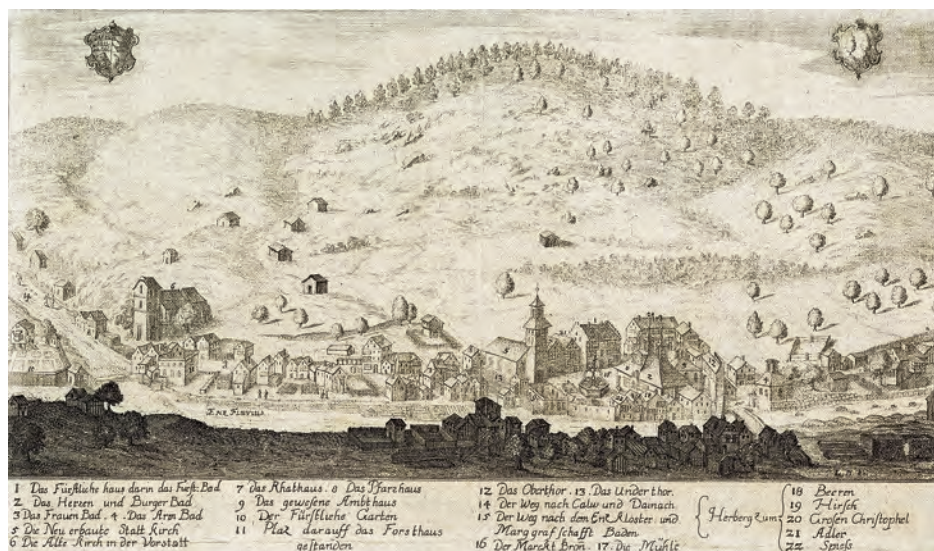 ENZ FLUVIUS
1 Das Fürstliche haus darin das Fürst: Bad
2 Das Herren und Burger Bad
3 Das Frauen Bad. 4. Das Arm Bad
5 Die Neu erbaute Statt Kirch
6 Die Alte Kirch in der Vorstatt
7 das Rhathaus. 8 Das Pfarzhaus
9 Das gewesene Ambthaus
10 Der Fürstliche Garten
11 Plaz darauff das Forsthaus
gestanden
12 Das Oberthor. 13. Das Underthor.
14 Der Weg nach Calw und Dainach
15 Der Weg nach dem Enz Kloster. und
Marggrafschafft Baden
16 Der Marckt Bron. 17. Die Mühle
Herberg zum
18 Beeren
19 Hirsch
20 Grosen Christophel
21 Adler
22 Spiess